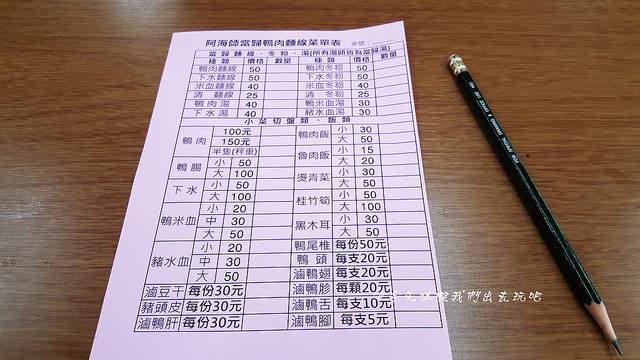 阿海師當歸鴨肉麵線菜單表 桌號：
當歸麵線、冬粉、湯(所有湯頭皆為當歸湯)
種類 價格 數量 種類 價格 數量
鴨肉麵線 50 鴨肉冬粉 50
下水麵線 50 下水冬粉 50
米血麵線 40 米血冬粉 40
清麵線 25 清冬粉 25
鴨肉湯 40 鴨米血湯 30
下水湯 40 豬水血湯 30
小菜切盤類、飯類
鴨肉 100元 鴨肉飯 小 30
150元 大 50
半隻(秤重) 魯肉飯 小 15
鴨腸 小 50 大 20
大 100 燙青菜 小 30
下水 小 50 大 50
大 100 桂竹筍 小 50
鴨米血 小 20 大 100
中 30 黑木耳 小 30
大 50 大 50
豬水血 小 20 鴨尾椎 每份50元
中 30 鴨頭 每支20元
大 50 滷鴨翅 每支20元
滷豆干 每份30元 滷鴨胗 每顆20元
豬頭皮 每份30元 滷鴨舌 每支10元
滷鴨肝 每份30元 滷鴨腳 每支5元
我們出去玩吧